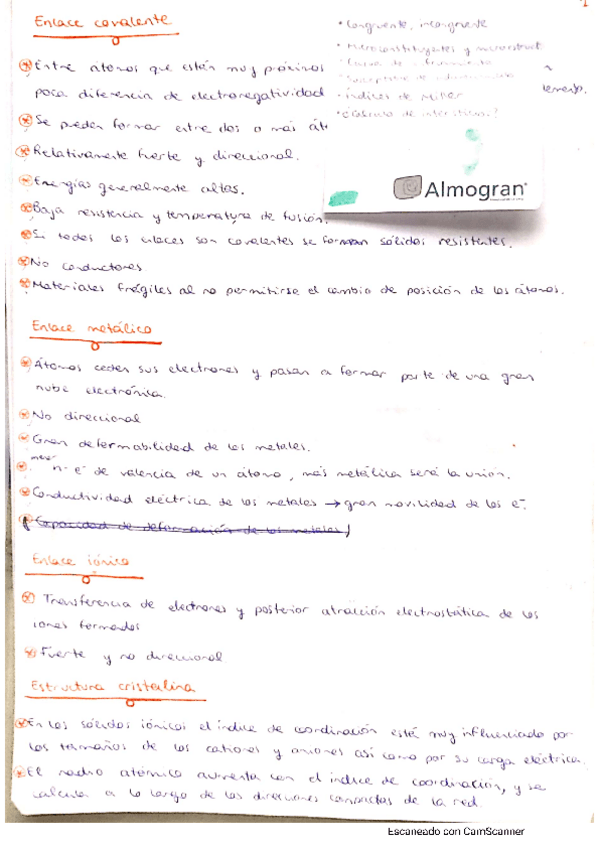 1
Enlace covalente
Entre átomos que están muy próximos
poca diferencia de electronegatividad
Se pueden formar entre dos o más
Relativamente fuerte y direccional.
Energías generalmente altas.
Baja resistencia y temperatura de fusión.
Si todos los enlaces son covalentes se forman sólidos resistentes.
No conductores
Materiales frágiles al no permitirse el cambio de posición de los átomos.
• Congruente, incongruente
• Microconstituyentes y microestruct
• Curva de enfriamiento
• Índices de Miller
Almogran
Enlace metálico
Átomos ceden sus electrones y pasan a formar parte de una gran
nube electrónica.
No direccional
Gran deformabilidad de los metales.
menor
nº e⁻ de valencia de un átomo, más metálica será la unión.
Conductividad eléctrica de los metales → gran movilidad de los e⁻.
Capacidad de deformación de los metales
Enlace iónico
Transferencia de electrones y posterior atracción electrostática de los
iones formados
Fuerte y no direccional
Estructura cristalina
En los sólidos iónicos el índice de coordinación está muy influenciado por
los tamaños de los cationes y aniones así como por su carga eléctrica.
El radio atómico aumenta con el índice de coordinación, y se
calcula a lo largo de las direcciones compactas de la red.
Escaneado con CamScanner